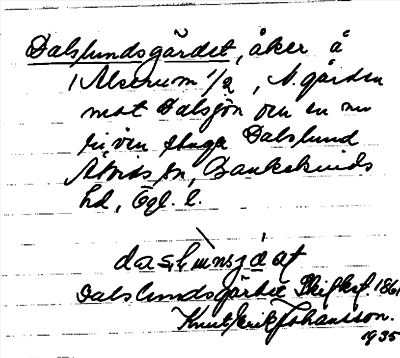 Dalslundsgärdet, åker å
1 Alserum 1/2, N. gården
mot Dalsjön och en nu
riven stuga Dalslund
Atvids sn, Bankekinds
hd, Ögl. l.
Dalslundsgärdet 1861
Knut Erik Johansson.
1935